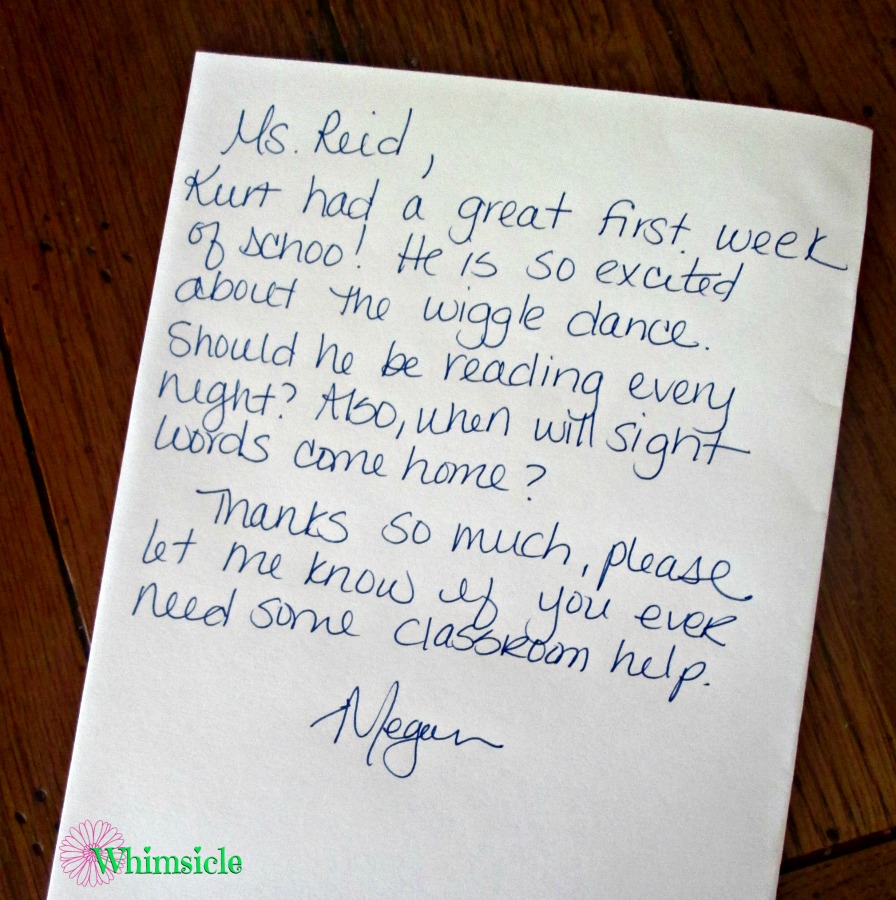 Ms. Reid,
Kurt had a great first week
of school! He is so excited
about the wiggle dance.
Should he be reading every
night? Also, when will sight
words come home?
Thanks so much, please
let me know if you ever
need some classroom help.
Megan
Whimsicle